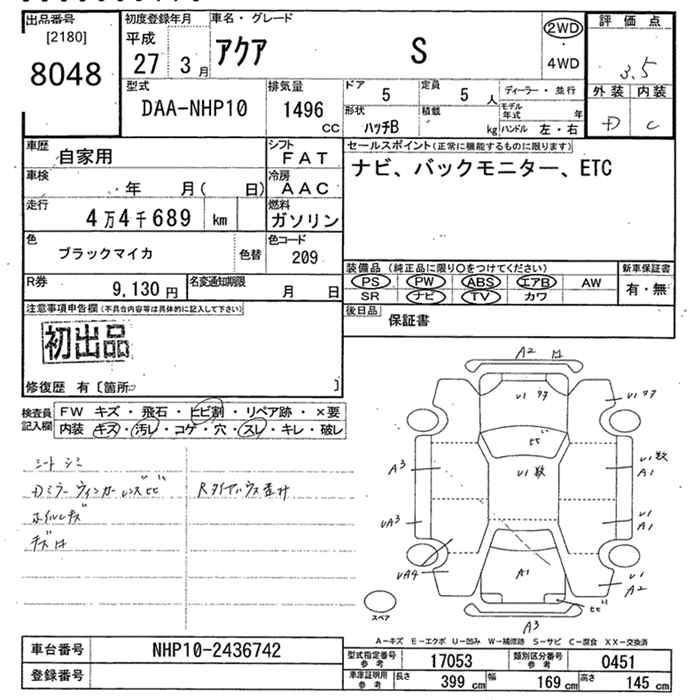 出品番号
[2180]
8048
初度登録年月
平成
27 3月
車名・グレード
アクア S
2WD
・
4WD
評価点
3.5
外装 内装
D C
型式
DAA-NHP10
排気量
1496
CC
ドア
5
定員
5 人
ディーラー・並行
形状
ハッチB
積載
kg
モデル年式 年
ハンドル 左・右
車歴
自家用
シフト
FAT
車検
年 月( 日)
冷房
AAC
走行
4万4千689 km
燃料
ガソリン
色
ブラックマイカ
色替
色コード
209
R券
9,130 円
名変通知期限
月 日
セールスポイント(正常に機能するものに限ります)
ナビ、バックモニター、ETC
装備品(純正品に限り○をつけてください)
新車保証書
PS PW ABS エアB AW
有・無
SR ナビ TV カワ
後日品
保証書
注意事項申告欄(不具合内容等は具体的に記入して下さい)
初出品
修復歴 有〔箇所 〕
検査員記入欄
FW キズ・飛石・ヒビ割・リペア跡・×要
内装 キズ・汚レ・コゲ・穴・スレ・キレ・破レ
シートシミ
Dミラーウィンカーレンズヒビ
ホイルキズ
キズ日
A2
U1
ヒビ
U1数
A3
U1数
A1
UA3
U1
A1
UA4
A1
U1
A2
ヒビ
A3
スペア
A-キズ E-エクボ U-凹み W-補修跡 S-サビ C-腐食 XX-交換済
車台番号
NHP10-2436742
登録番号
型式指定番号
参考
17053
類別区分番号
参考
0451
車庫証明用
参考
長さ
399 cm
幅
169 cm
高さ
145 cm